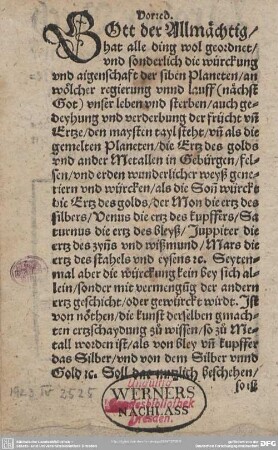 Vorred.
GOtt der Allmächtig/
hat alle ding wol geordnet/
vnd sonderlich die würckung
vnd aigenschafft der siben Planeten/an
wölcher regierung vnnd lauff (nächst
Got) vnser leben vnd sterben/auch ge-
deyhung vnd verderbung der frücht vñ
Ertze/den maysten tayl steht/vñ als die
gemelten Planeten/die Ertz des golds
vnd ander Metallen in Gebürgen/fel-
sen/vnd erden wunderlicher weyß gene-
riern vnd würcken/als die Soñ würckt
die Ertz des golds/der Mon die ertz des
silbers/Venus die ertz des kupffers/Sa
turnus die ertz des bleyß/Juppiter die
ertz des zyns vnd wißmund/Mars die
ertz des stahels vnd eysens ꝛc. Seyten-
mal aber die würckung kein bey sich al-
lein/sonder mit vermengũg der andern
ertz geschicht/oder gewürckt würdt. Jst
von nöthen/die kunst derselben gmach-
ten ertzschaydung zů wissen/so zů Me-
tall worden ist/als von bley vñ kupffer
das Silber/vnd von dem Silber vnnd
Gold ꝛc. Soll das nutzlich beschehen/
so ist
1923 IV 2525
WERNERS
NACHLASS
Landesbibliothek
Dresden.